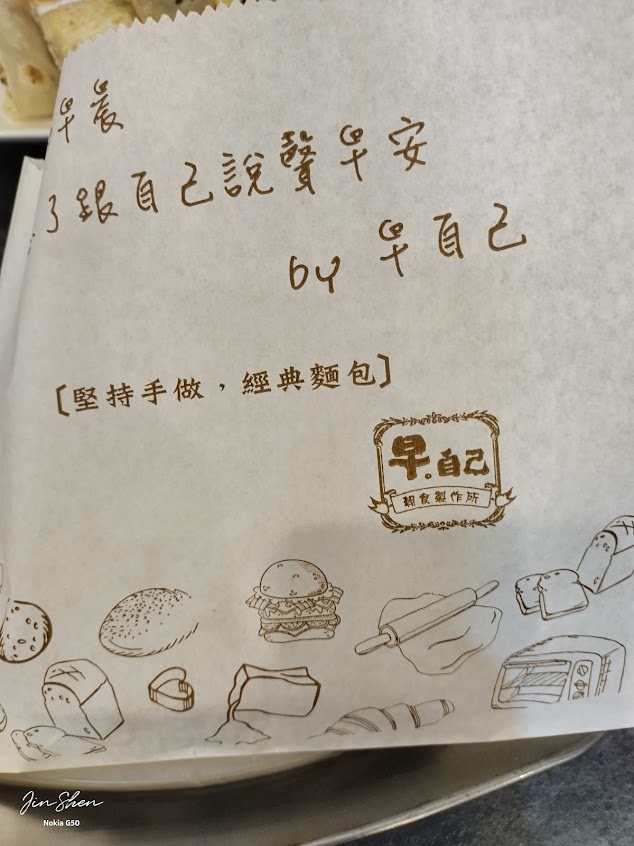 早晨
了跟自己說聲早安
by 早自己
[堅持手做,經典麵包]
早。自己
朝食製作所
Jin Shen
Nokia G50